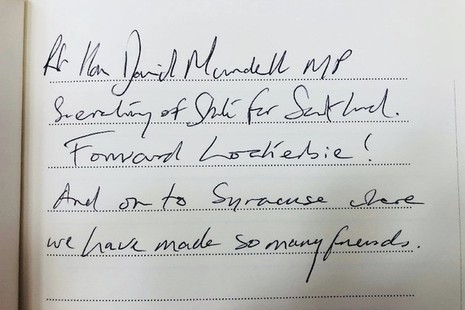 Rt Hon David Mundell MP
Secretary of State for Scotland.
Forward Lockerbie!
And on to Syracuse where
we have made so many friends.